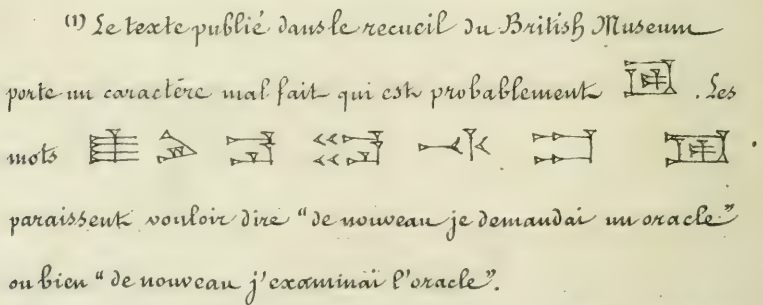 (1) Le texte publié dans le recueil du British Museum
porte un caractère mal fait qui est probablement . Les
mots .
paraissent vouloir dire “de nouveau je demandai un oracle”
ou bien “de nouveau j'examinai l'oracle”.